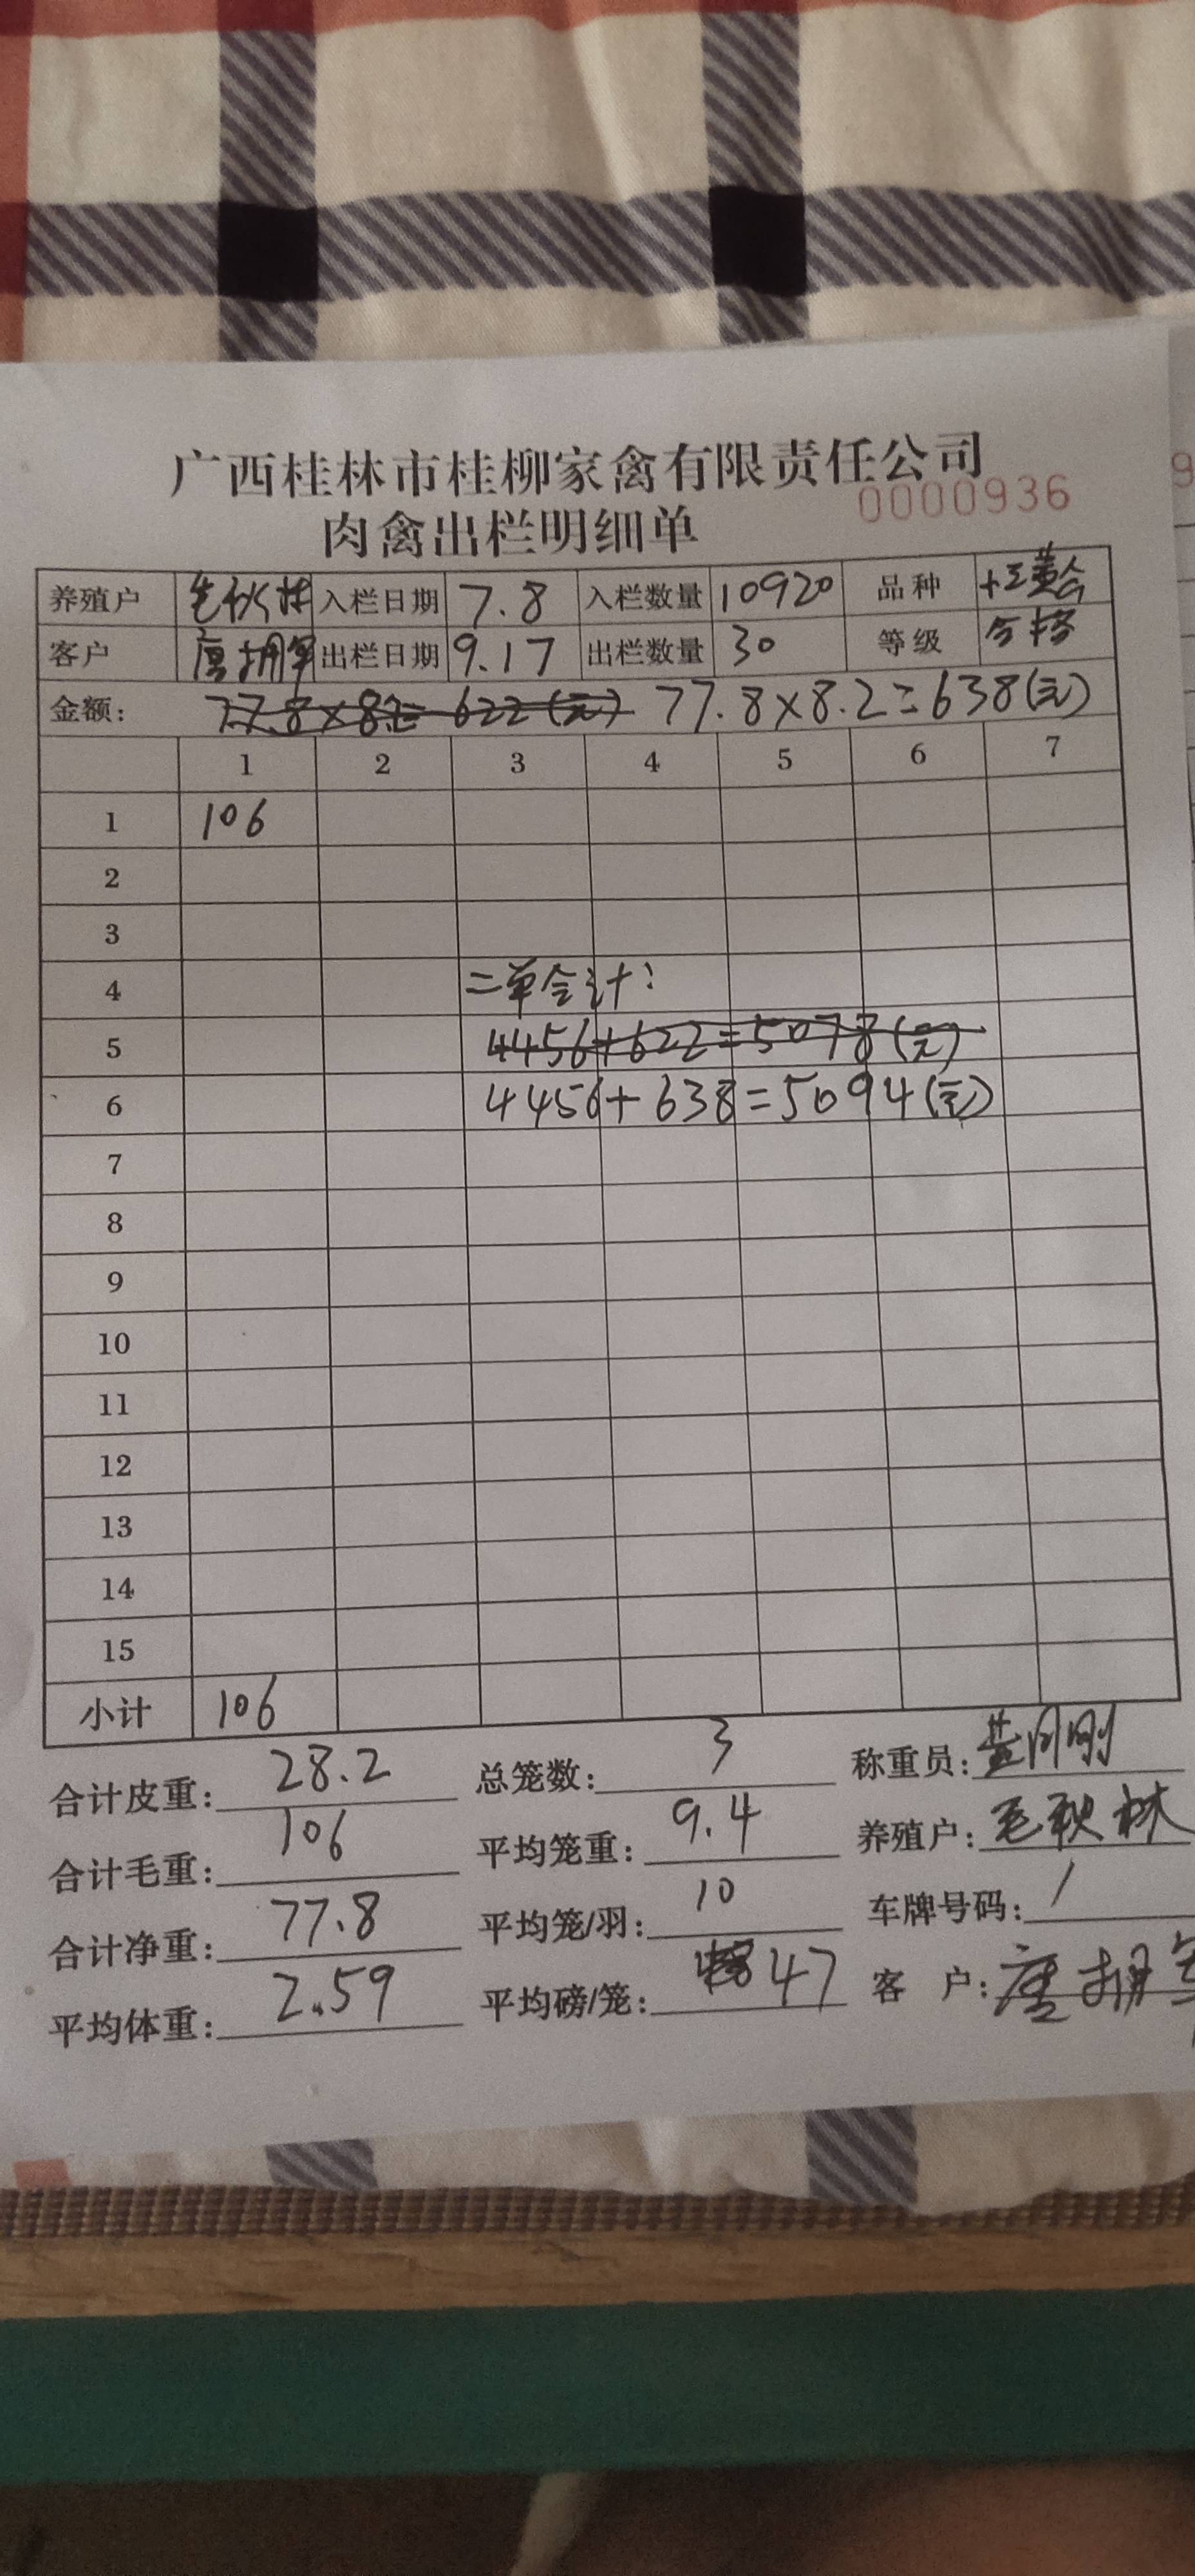 广西桂林市桂柳家禽有限责任公司
0000936
肉禽出栏明细单
养殖户 毛秋林 入栏日期 7.8 入栏数量 10920 品种
客户 唐拥军 出栏日期 9.17 出栏数量 30 等级 合格
金额: 77.8×8.2=622(元) 77.8×8.2=638(元)
1 2 3 4 5 6 7
1 106
2
3
4 二单合计:
5 4456+622=5078(元)
6 4456+638=5094(元)
7
8
9
10
11
12
13
14
15
小计 106
合计皮重: 28.2 总笼数: 3 称重员:
合计毛重: 106 平均笼重: 9.4 养殖户: 毛秋林
合计净重: 77.8 平均笼/羽: 10 车牌号码: /
平均体重: 2.59 平均磅/笼: 47 客 户: 唐拥军
9